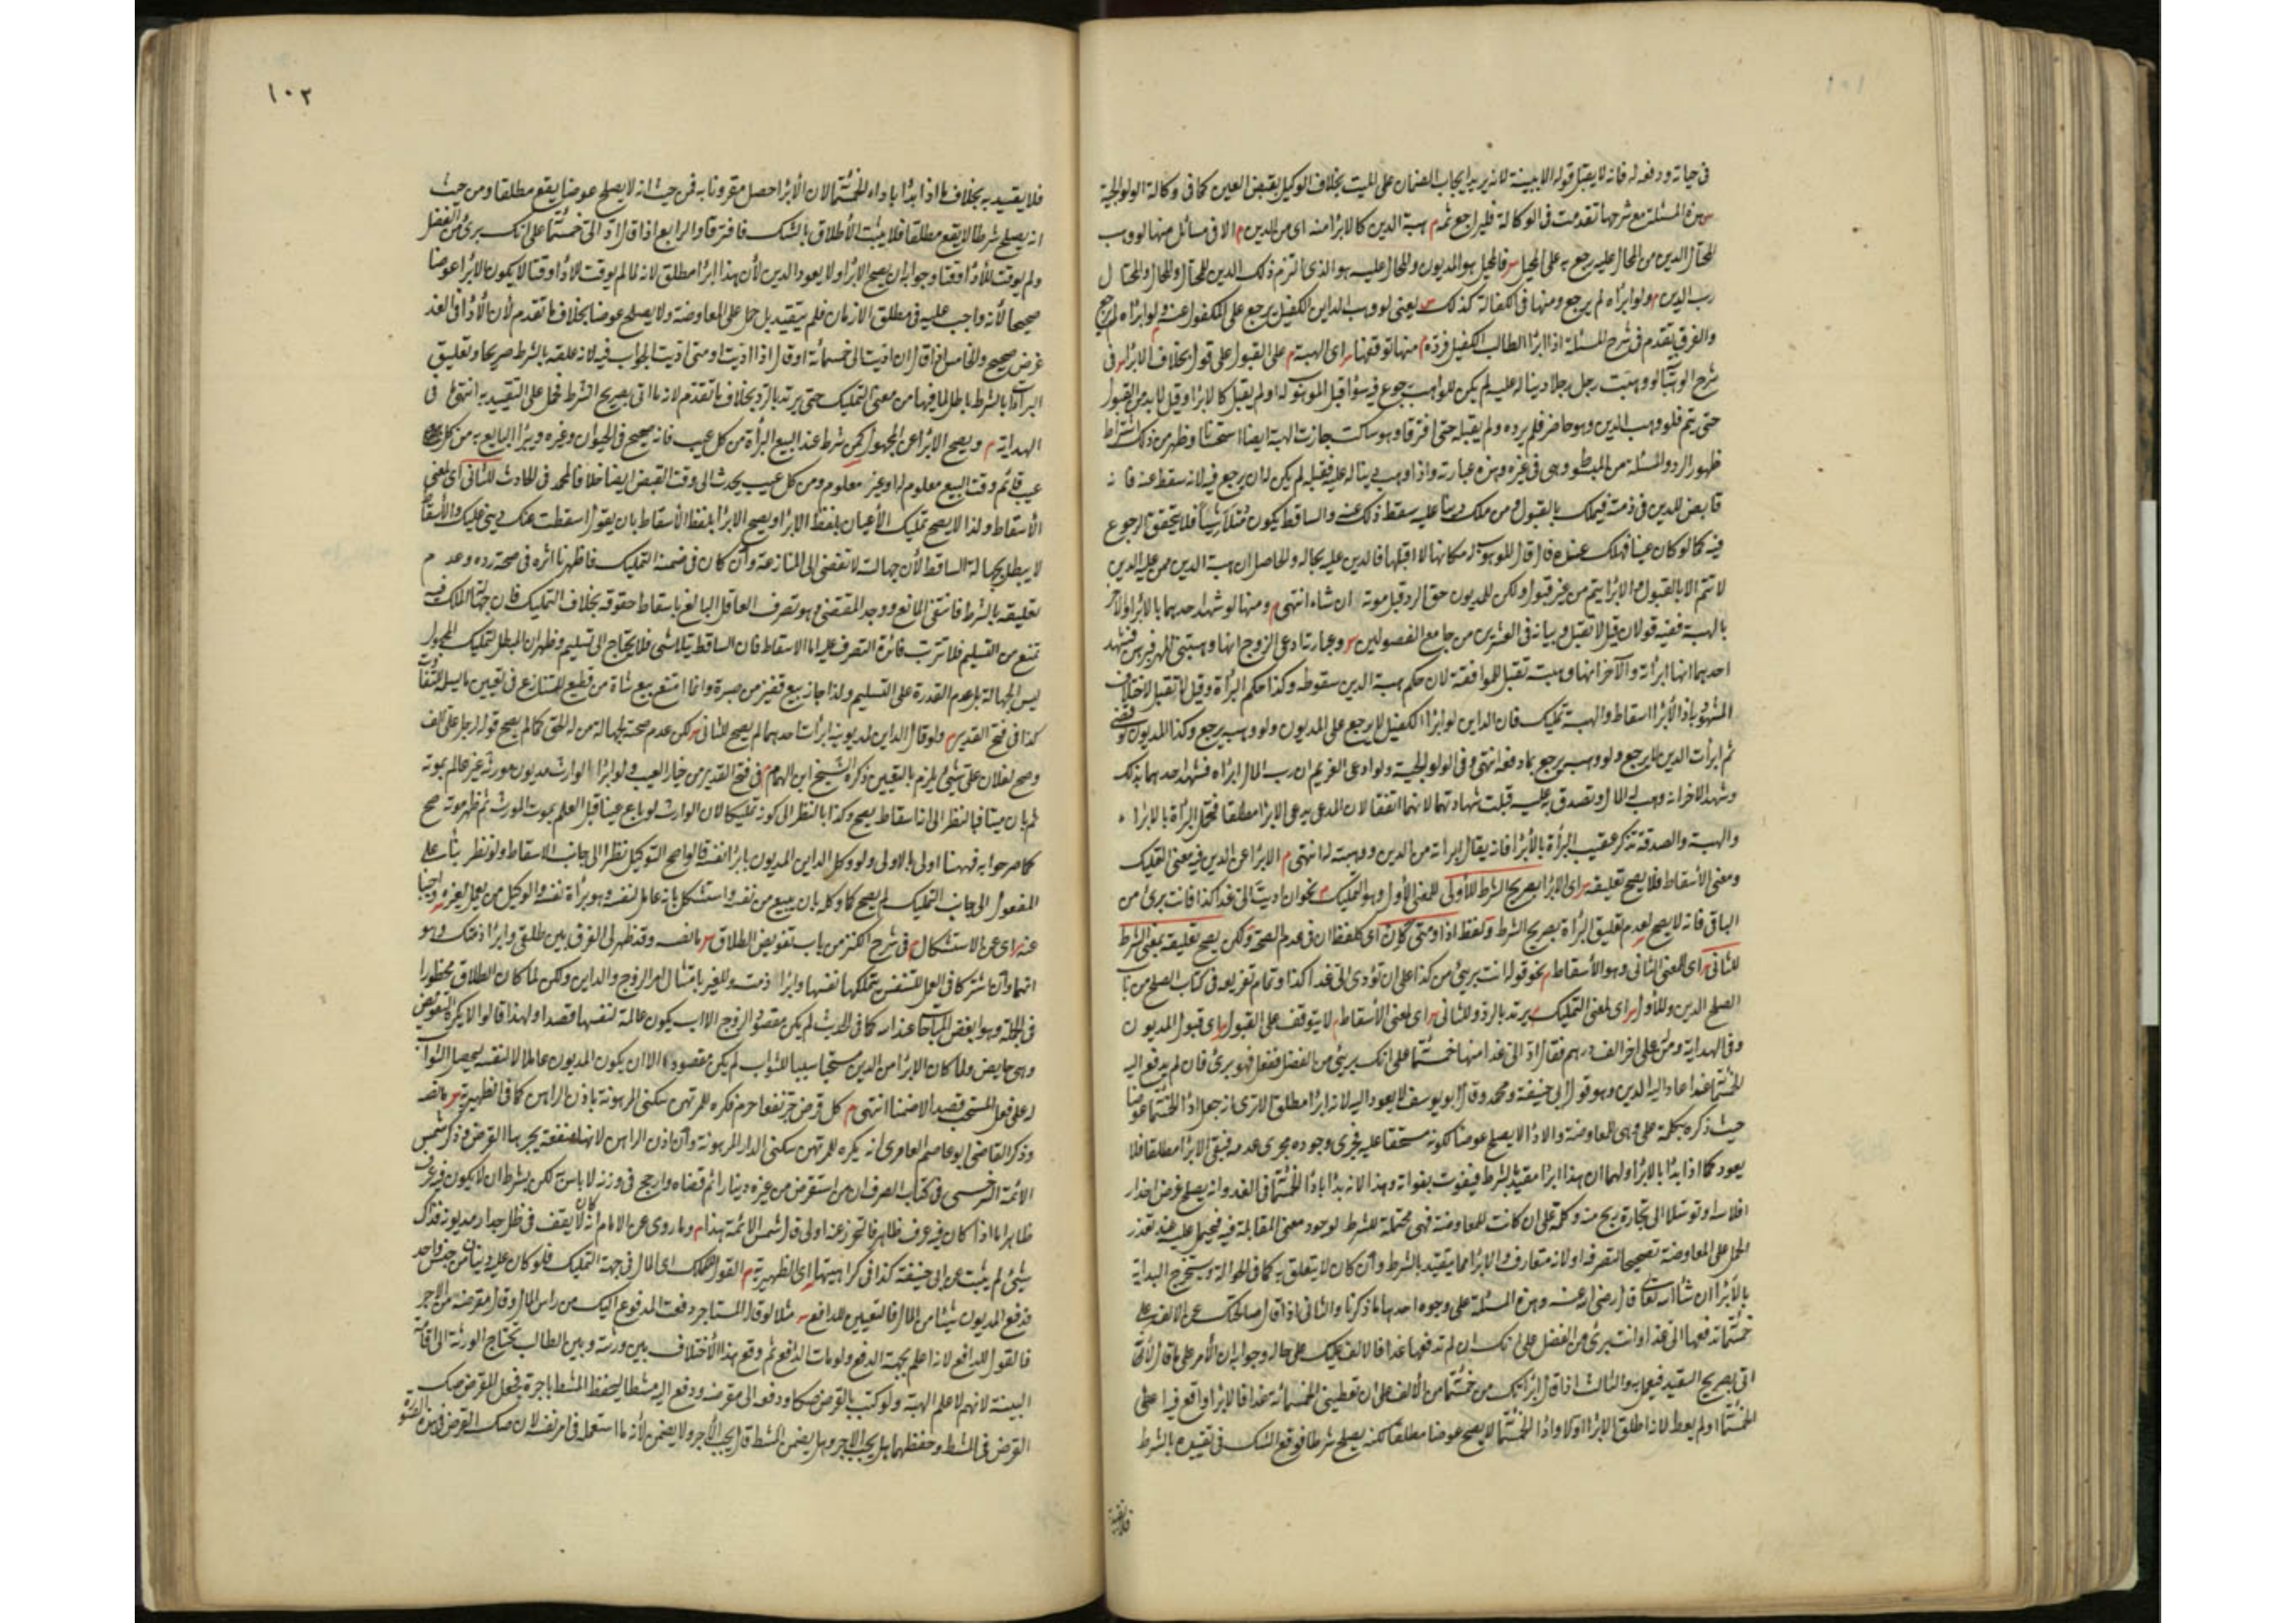 ١٠١
في حياته ودفعه له فانه لا يقبل قوله الا ببينة لانه يريد ايجاب الضمان على الميت بخلاف الوكيل بقبض العين كما في وكالة الولوالجية
هذه المسئلة مع شرحها تقدمت في الوكالة فليراجع ثمه م هبة الدين كالابراء منه اى من الدين م الا في مسائل منها لو وهب
المحتال الدين من المحال عليه رجع به على المحيل س فالمحيل هو المديون والمحال عليه هو الذي التزم ذلك الدين للمحتال والمحتال
رب الدين م ولو ابراه لم يرجع ومنها في الكفالة كذلك س يعنى لو وهب الداين الكفيل يرجع على المكفول عنه ولو ابراه لم يرجع
والفرق تقدم في شرح المسئلة اذا ابرأ الطالب الكفيل فرده م منها توقفها س اى الهبة م على القبول على قول بخلاف الابراء س في
شرح الوهبانية لو وهبت رجل رجلا دينا له عليه لم يكن للواهب رجوع فيه سواء قبل الموهوب له او لم يقبل كالابراء وقيل لا بد من القبول
حتى يتم فلو وهب الدين وهو حاضر فلم يرده ولم يقبله حتى افترقا وهو ساكت جازت الهبة ايضا استحسانا وظهر من ذلك اشتراط
ظهور الرد والمسئلة من المبسوط وهى في غيره وهذه عبارته واذا وهب دينا له عليه فقبله لم يكن له ان يرجع فيه لانه سقط عنه فانه
قابض للدين في ذمته فيملك بالقبول ومن ملك دينا عليه سقط ذلك عنه والساقط يكون متلاشيا فلا يتحقق الرجوع
فيه كما لو كان عينا فهلك عنده قال قال الموهوب له مكانها لا اقبلها فالدين عليه بحاله والحاصل ان هبة الدين ممن عليه الدين
لا تتم الا بالقبول والابراء يتم من غير قبول ولكن للمديون حق الرد قبل موته ان شاء انتهى م ومنها لو شهد احدهما بالابراء والآخر
بالهبة ففيه قولان قيل لا تقبل وبيانه في العشرين من جامع الفصولين س وعبارته ادعى الزوج انها وهبتنى المهر فبرهن فشهد
احدهما انها ابرأته والآخر انها وهبته تقبل للموافقة لان حكم هبة الدين سقوطه وكذا حكم البرأة وقيل لا تقبل لاختلاف
المشهود به اذ الابراء اسقاط والهبة تمليك فان الداين لو ابرأ الكفيل لا يرجع على المديون ولو وهبه يرجع وكذا المديون لو قضى
ثم ابرأت الدين لا يرجع ولو وهبه يرجع بما دفعه انتهى وفى الولوالجية ولو ادعى الغريم ان رب المال ابراه فشهد احدهما بذلك
وشهد الاخر انه وهب له المال وتصدق به عليه قبلت شهادتهما لانهما اتفقا لان المدعى يدعى الابراء مطلقا فتحل البرأة بالابراء
والهبة والصدقة تذكر عقيب البرأة بالابراء فانه يقال ابرأته من الدين ووهبته له انتهى م الابراء عن الدين فيه معنى التمليك
ومعنى الاسقاط فلا يصح تعليقه س اى الابراء بصريح الشرط للأول للمعنى الأول وهو التمليك م نحو ان اديت الى غدا كذا فانت برئ من
الباقى فانه لا يصح لعدم تعليق البرأة بصريح الشرط ولفظ اذا ومتى كان اى كلفظ ان في عدم الصحة ولكن يصح تعليقه بمعنى الشرط
للثانى س اى للمعنى الثانى وهو الاسقاط م نحو قوله انت برئ من كذا على ان تؤدى الى غدا كذا وتمام تفريعه في كتاب الصلح من باب
الصلح الدين وللأول س اى لمعنى التمليك م يرتد بالرد وللثانى س اى لمعنى الاسقاط م لا يتوقف على القبول س اى قبول المديون
وفى الهداية ومن له على اخر الف درهم فقال اد الى غدا منها خمسمائة على انك برئ من الفضل ففعل فهو برئ فان لم يدفع اليه
الخمسمائة غدا عاد اليه الدين وهو قول ابى حنيفة ومحمد وقال ابو يوسف لا يعود اليه لانه ابراء مطلق الا ترى انه جعل اداء الخمسمائة عوضا
حيث ذكره بكلمة على وهى للمعاوضة والاداء لا يصلح عوضا لكونه مستحقا عليه فجرى وجوده مجرى عدمه فبقى الابراء مطلقا فلا
يعود كما اذا بدأ بالابراء ولهما ان هذا ابراء مقيد بالشرط فيفوت بفواته وهذا لانه بدأ باداء الخمسمائة في الغد وانه يصلح غرضا حذار
افلاسه او توسلا الى تجارة اربح منه وكلمة على ان كانت للمعاوضة فهى محتملة للشرط لوجود معنى المقابلة فيه فيحمل عليه عند تعذر
الحمل على المعاوضة تصحيحا لتصرفه او لانه متعارف والابراء مما يتقيد بالشرط وان كان لا يتعلق به كما في الحوالة وسنخرج البداية
بالابراء ان شاء الله تعالى قال رضى الله عنه وهذه المسئلة على وجوه احدها ما ذكرنا والثانى اذا قال صالحتك عن الالف على
خمسمائة تدفعها الى غدا وانت برئ من الفضل على انك ان لم تدفعها غدا فالالف عليك على حاله وجوابه ان الأمر على ما قال لأنه
اتى بصريح التقييد فيعمل به والثالث اذا قال ابرأتك من خمسمائة من الالف على ان تعطينى الخمسمائة غدا فالابراء واقع فيه اعطى
الخمسمائة او لم يعط لانه اطلق الابراء اولا واداء الخمسمائة لا يصلح عوضا مطلقا لكنه يصلح شرطا فوقع الشك في تقييده بالشرط
فلا يتقيد
١٠٢
فلا يتقيد به بخلاف ما اذا بدأ باداء الخمسمائة لان الابراء حصل مقرونا به فمن حيث انه لا يصلح عوضا يقع مطلقا ومن حيث
انه يصلح شرطا لا يقع مطلقا فلا يثبت الأطلاق بالشك فافترقا والرابع اذا قال اد الى خمسمائة على انك برئ من الفضل
ولم يوقت للأداء وقتا وجوابه ان يصح الابراء ولا يعود الدين لأن هذا ابراء مطلق لانه لما لم يوقت للاداء وقتا لا يكون الابراء عوضا
صحيحا لأنه واجب عليه في مطلق الازمان فلم يتقيد بل حمل على المعاوضة ولا يصلح عوضا بخلاف ما تقدم لأن الأداء في الغد
غرض صحيح والخامس اذا قال ان اديت الى خمسمائة او قال اذا اديت او متى اديت الجواب فيه لانه علقه بالشرط صريحا وتعليق
البرآت بالشرط باطل لما فيها من معنى التمليك حتى يرتد بالرد بخلاف ما تقدم لانه ما اتى بصريح الشرط فحمل على التقييد به انتهى في
الهداية م ويصح الابراء عن المجهول س كمن شرط عند البيع البرأة من كل عيب فانه صحيح في الحيوان وغيره ويبرأ البايع به من كل
عيب قائم وقت البيع معلوم له او غير معلوم ومن كل عيب يحدث الى وقت القبض ايضا خلافا لمحمد في الحادث للثانى اى لمعنى
الأسقاط ولذا لا يصح تمليك الأعيان بلفظ الابراء ويصح الابراء بلفظ الأسقاط بان يقول اسقطت عنك دينى عليك والأسقاط
لا يبطل بجهالة الساقط لأن جهالته لا تفضى الى المنازعة وأن كان في ضمنه التمليك فاظهرنا اثره في صحة رده وعدم
تعليقه بالشرط فانتفى المانع ووجد المقتضى وهو تصرف العاقل البالغ باسقاط حقوقه بخلاف التمليك فان جهالة الملك فيه
تمنع من التسليم فلا تترتب فائدة التصرف عليه اما الاسقاط فان الساقط يتلاشى فلا يحتاج الى تسليم وظهر ان المبطل لتمليك المجهول
ليس الجهالة بل عدم القدرة على التسليم ولذا جاز بيع قفيز من صبرة وانما امتنع بيع شاة من قطيع للتنازع في تعيين ما يسلم للتفاوت
كذا في فتح القدير م ولو قال الداين لمديونيه ابرأت احدهما لم يصح للثانى س لكن عدم صحته لجهالة من له الحق كما لم يصح قوله لرجل على الف
وصح لفلان على شئ يلزم بالتعيين ذكره الشيخ ابن الهمام م في فتح القدير من خيار العيب ولو ابرأ الوارث مديون مورثه غير عالم بموته
ثم بان ميتا فبالنظر الى انه اسقاط يصح وكذا بالنظر الى كونه تمليكا لان الوارث لو باع عينا قبل العلم بموت المورث ثم ظهر موته صح
كما صرحوا به فههنا اولى بالاولى ولو وكل الداين المديون بابراء نفسه قالوا صح التوكيل نظرا الى جانب الاسقاط ولو نظر
المفعول الى جانب التمليك لم يصح كما لو وكله بان يبيع من نفسه واستشكل بانه عامل لنفسه وهو براءة نفسه والوكيل من يعمل لغيره واجبنا
عنه س اى عن الاستشكال م في شرح الكنز من باب تفويض الطلاق س مانصه وقد ظهر لى الفرق بين طلقى وابرأ ذمتك وهو
انهما وان اشتركا في العمل للنفس بتملكها نفسها وابراء ذمته وللغير بامتثال امر الزوج والداين ولكن لما كان الطلاق محظورا
في الجملة وهو ابغض المباحات عند الله كما في الحديث لم يكن مقصود الزوج الا ان يكون عاملة لنفسها قصدا ولهذا قالوا لا يكره التفويض
وهى حايض ولما كان الابراء من الدين مستحبا سببا للثواب لم يكن مقصوده الا ان يكون المديون عاملا لا لنفسه ليحصل الثواب
له على فعل المستحب قصدا لا ضمنا انتهى م كل قرض جر نفعا حرم فكره للمرتهن سكنى المرهونة باذن الراهن كما في الظهيرية س مانصه
وذكر القاضى ابو عاصم العامرى انه يكره للمرتهن سكنى الدار المرهونة وأن اذن الراهن لانها منفعة يجرها القرض وذكر شمس
الائمة السرخسى في كتاب الصرف ان من استقرض من غيره دينارا ثم قضاه وارجح في وزنه لا باس به لكن بشرط ان لا يكون فيه عرف
ظاهر اما اذا كان فيه عرف ظاهر فالتحرز عنه اولى قال شمس الائمة هذا م وما روى عن الامام انه كان لا يقف في ظل جدار مديونه فذاك
شئ لم يثبت عن ابى حنيفة كذا في كراهيتها س اى الظهيرية م القول للمملك اى المال في جهة التمليك فلو كان عليه دينان من جنس واحد
فدفع المديون شيئا من المال فالتعيين للدافع س مثلا لو قال المستاجر دفعت المدفوع اليك من راس المال وقال مقرضه من الاجر
فالقول للدافع لانه اعلم بجهة الدفع ولو مات الدافع ثم وقع هذا الاختلاف بين ورثته وبين الطالب يحتاج الورثة الى اقامة
البينة لانهم لا علم لهم البتة ولو كتب بالقرض صكا ودفعه الى مقرضه ودفع اليه مشطا ليحفظ المشط باجرة فجعل المقرض صك
القرض في المشط وحفظهما هل يجب الاجر وهل يضمن المشط قال يجب الأجر ولا يضمن لأنه ما استعمله في امر نفسه لان صك القرض في هذه الصورة